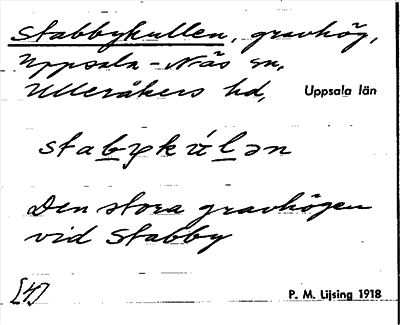 Stabbykullen, gravhög,
Uppsala-Näs sn,
Ulleråkers hd, Uppsala län
stabykúlən
Den stora gravhögen
vid Stabby
[4]
P. M. Lijsing 1918